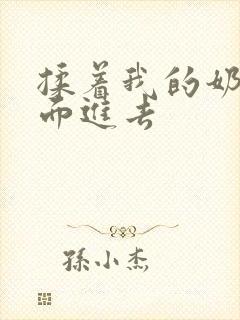 揉着我的奶
而進去
孫小杰